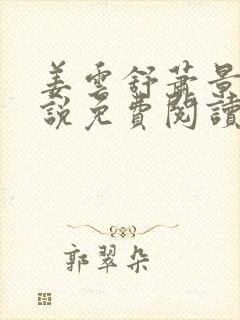 姜雲舒蕭景
說免費閱讀
郭翠朵